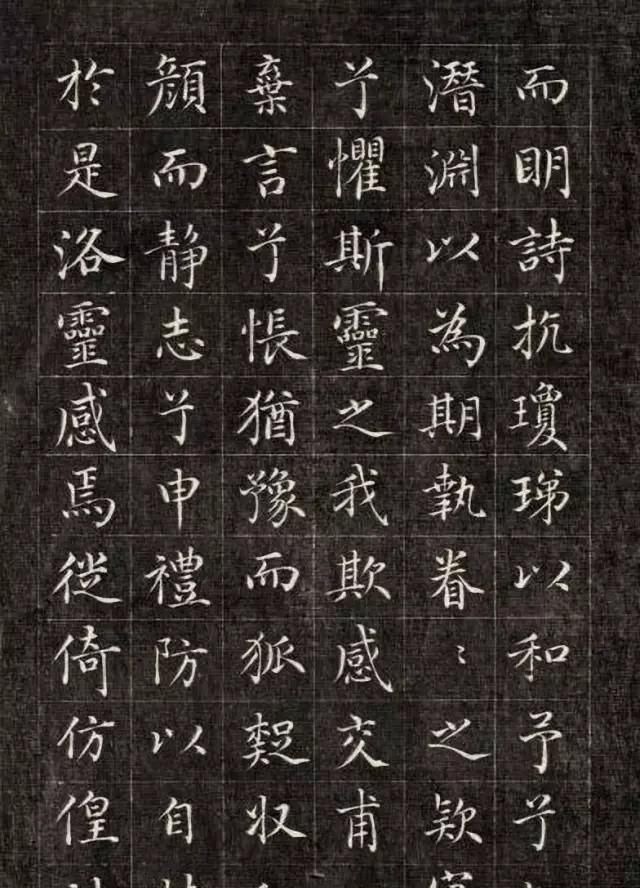 而眀詩抗瓊珶以和予兮
潛淵以為期執眷〻之款
兮懼斯靈之我欺感交甫
棄言兮悵猶豫而狐疑収
顏而静志兮申禮防以自
於是洛靈感焉徙倚仿偟